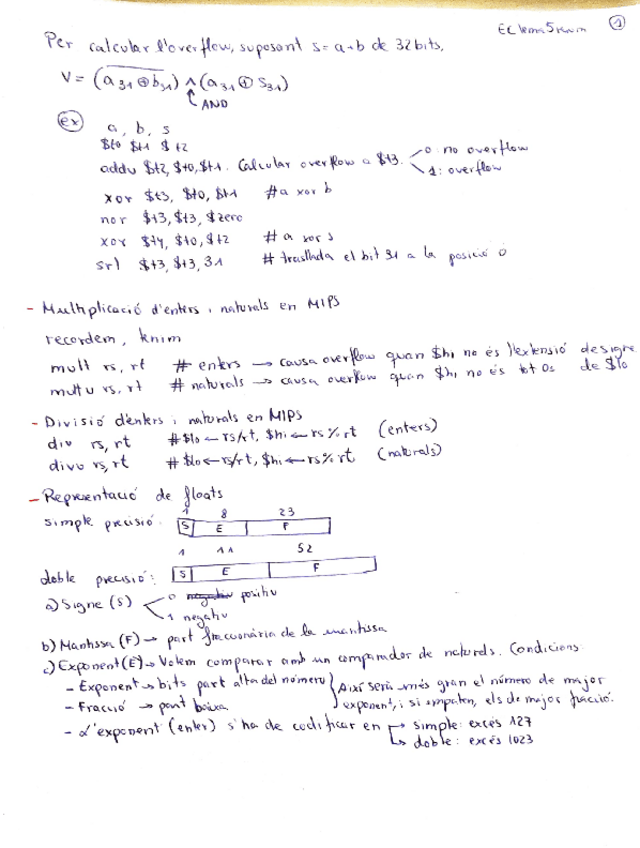 EC tema 5 resum 1
Per calcular l'overflow, suposant s = a+b de 32 bits,
V = (a31 ⊕ b31) ∧ (a31 ⊕ s31)
AND
ex
a, b, s
$t0 $t1 $t2
addu $t2, $t0, $t1. Calcular overflow a $t3. 0: no overflow
1: overflow
xor $t3, $t0, $t1 # a xor b
nor $t3, $t3, $zero
xor $t4, $t0, $t2 # a xor s
srl $t3, $t3, 31 # trasllada el bit 31 a la posició 0
- Multiplicació d'enters i naturals en MIPS
recordem,
mult rs, rt # enters → causa overflow quan $hi no és l'extensió de signe de $lo
multu rs, rt # naturals → causa overflow quan $hi no és tot 0s
- Divisió d'enters i naturals en MIPS
div rs, rt # $lo ← rs/rt, $hi ← rs % rt (enters)
divu rs, rt # $lo ← rs/rt, $hi ← rs % rt (naturals)
- Representació de floats
1 8 23
simple precisió: S E F
1 11 52
doble precisió: S E F
a) Signe (S) 0 positiu
1 negatiu
b) Mantissa (F) → part fraccionària de la mantissa
c) Exponent (E) → Volem comparar amb un comparador de naturals. Condicions:
- Exponent → bits part alta del número } Així serà més gran el número de major
- Fracció → part baixa exponent, i si empaten, els de major fracció.
- L'exponent (enter) s'ha de codificar en → simple: excés 127
→ doble: excés 1023